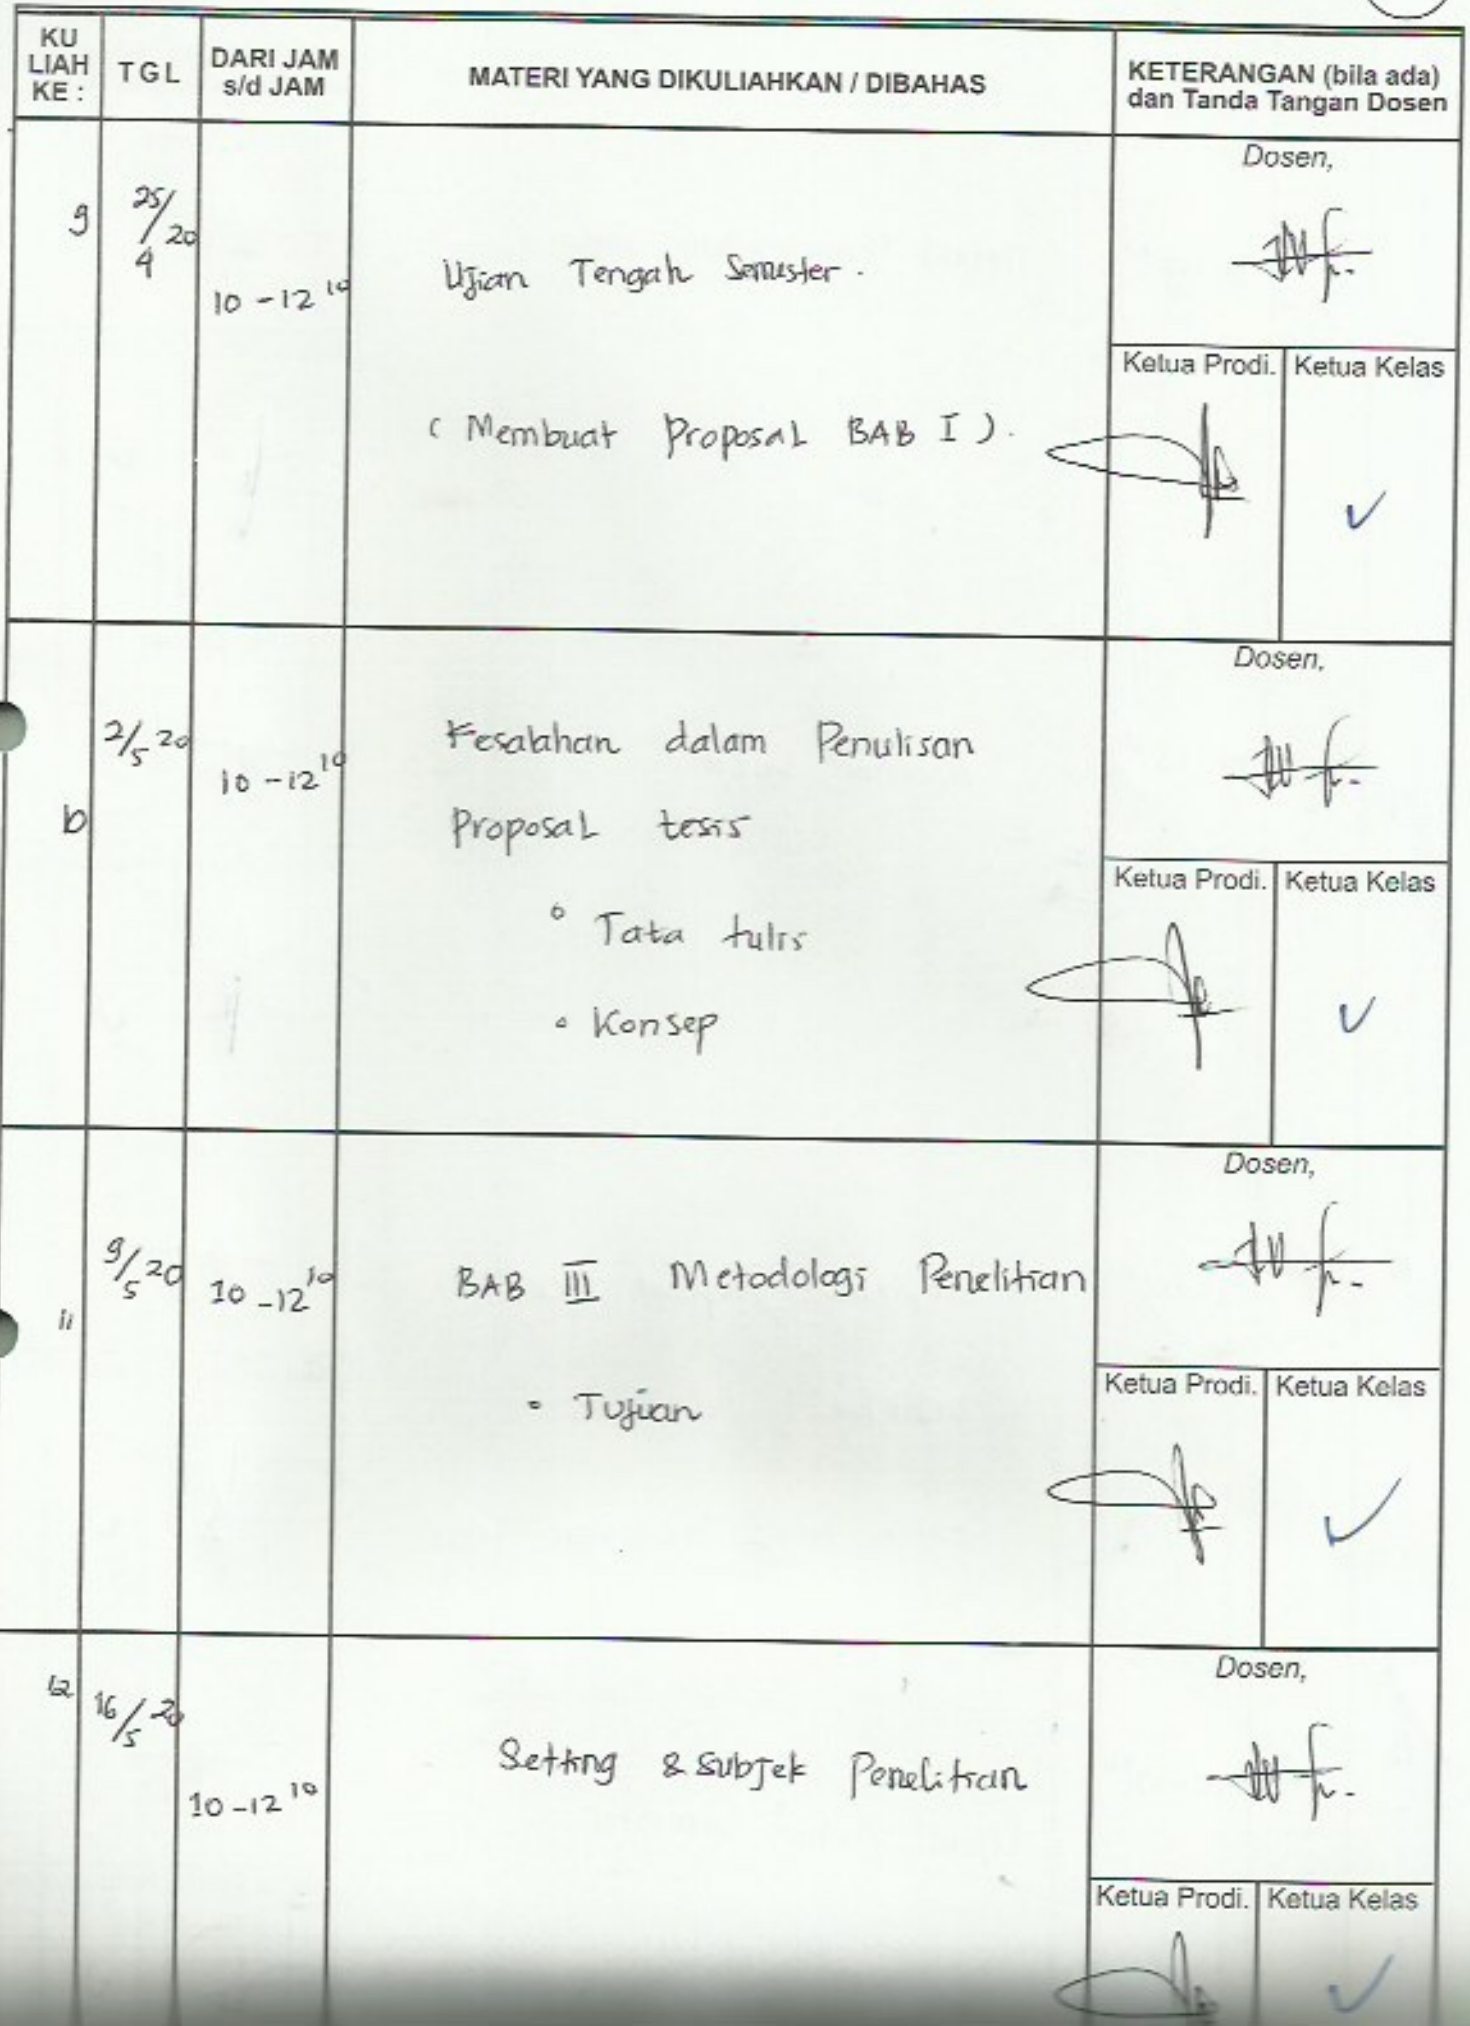 KU
LIAH
KE :
TGL
DARI JAM
s/d JAM
MATERI YANG DIKULIAHKAN / DIBAHAS
KETERANGAN (bila ada)
dan Tanda Tangan Dosen
9
25/4 20
10 - 12 10
Ujian Tengah Semester .
( Membuat Proposal BAB I ) .
Dosen,
Ketua Prodi.
Ketua Kelas
10
2/5 20
10 - 12 10
Kesalahan dalam Penulisan
Proposal tesis
° Tata tulis
° Konsep
Dosen,
Ketua Prodi.
Ketua Kelas
11
9/5 20
10 - 12 10
BAB III Metodologi Penelitian
° Tujuan
Dosen,
Ketua Prodi.
Ketua Kelas
12
16/5 20
10 - 12 10
Setting & Subjek Penelitian
Dosen,
Ketua Prodi.
Ketua Kelas